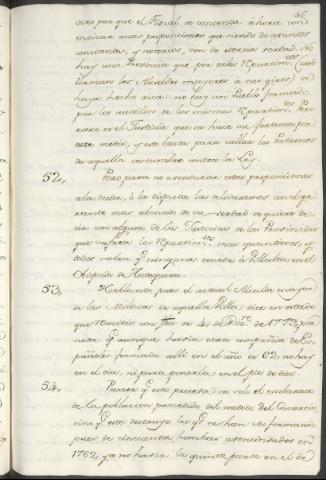 46
otro por que el Fiscal se contenta áhora con
indicar unas proposiciones que siendo de asuntos
constantes, y notorios, son de eterna verdad. No
hay una Provincia que por los Repartim.tos (asi
llaman los Alcaldes mayores á sus giros) se
haya hecho rica: no hay un Pueblo formado
por los auxilios de los mismos Repartim.tos Pero
raro es el Justicia que no hace su fortuna por
este medio, y esto basta para callar los Patronos
de aquella costumbre contra la Ley.
52, Pero para no aventurar estas proposiciones
ála duda, ó la disputa las valdremos con el ga-
rante mas abonado de su verdad se quiere de-
cir con alguno de las Justicias de las Provincias
que sufren los Repartim.tos mas quantiosos, y
todos saben q.e ninguna excede á Villalta en el
Obispado de Huaxaca.
53, Hablando pues el actual Alcalde mayor
de las Milicias de aquella Villa dice en estado
que remitió con fha de 4 de Dbre. de 1773,
nota q.e aunque havia otra compañia de Es-
pañoles formada alli en el año de 62, no hay
en el dia, ni para ponerla en el pie de
54, Parece q.e esto prueva no solo el embarazo
de la poblacion procedido del metodo del comercio,
sino q.e esto destruye los q.e se han ido formando
pues de cincuenta hombres avecindados en
1762, ya no havia la quinta parte en el de